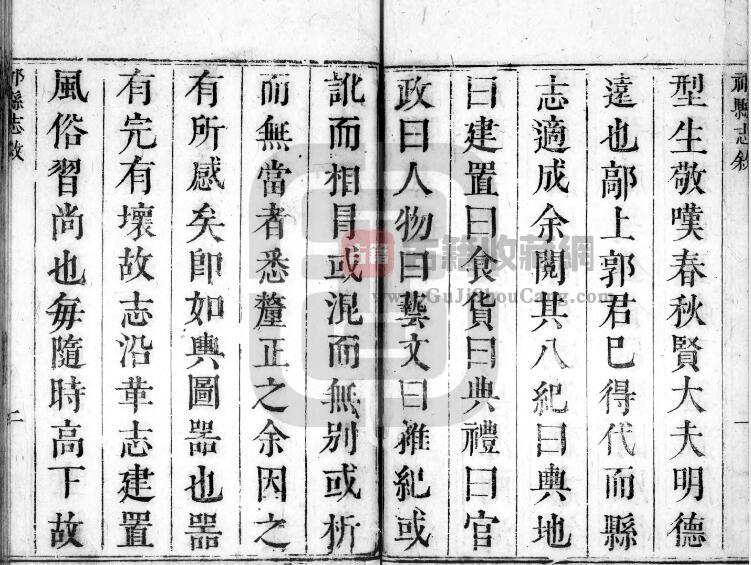 祁縣志敘
一
型生敬嘆春秋賢大夫明德
遠也鄗上郭君已得代而縣
志適成余閱其八紀曰輿地
曰建置曰食貨曰典禮曰官
政曰人物曰藝文曰雜紀或
訛而相冒或混而無別或析
而無當者悉釐正之余因之
有所感矣卽如輿圖器也器
有完有壞故志沿革志建置
風俗習尚也每隨時高下故
祁縣志敘
二
古籍
古籍收藏網
www.GuJiShouCang.com